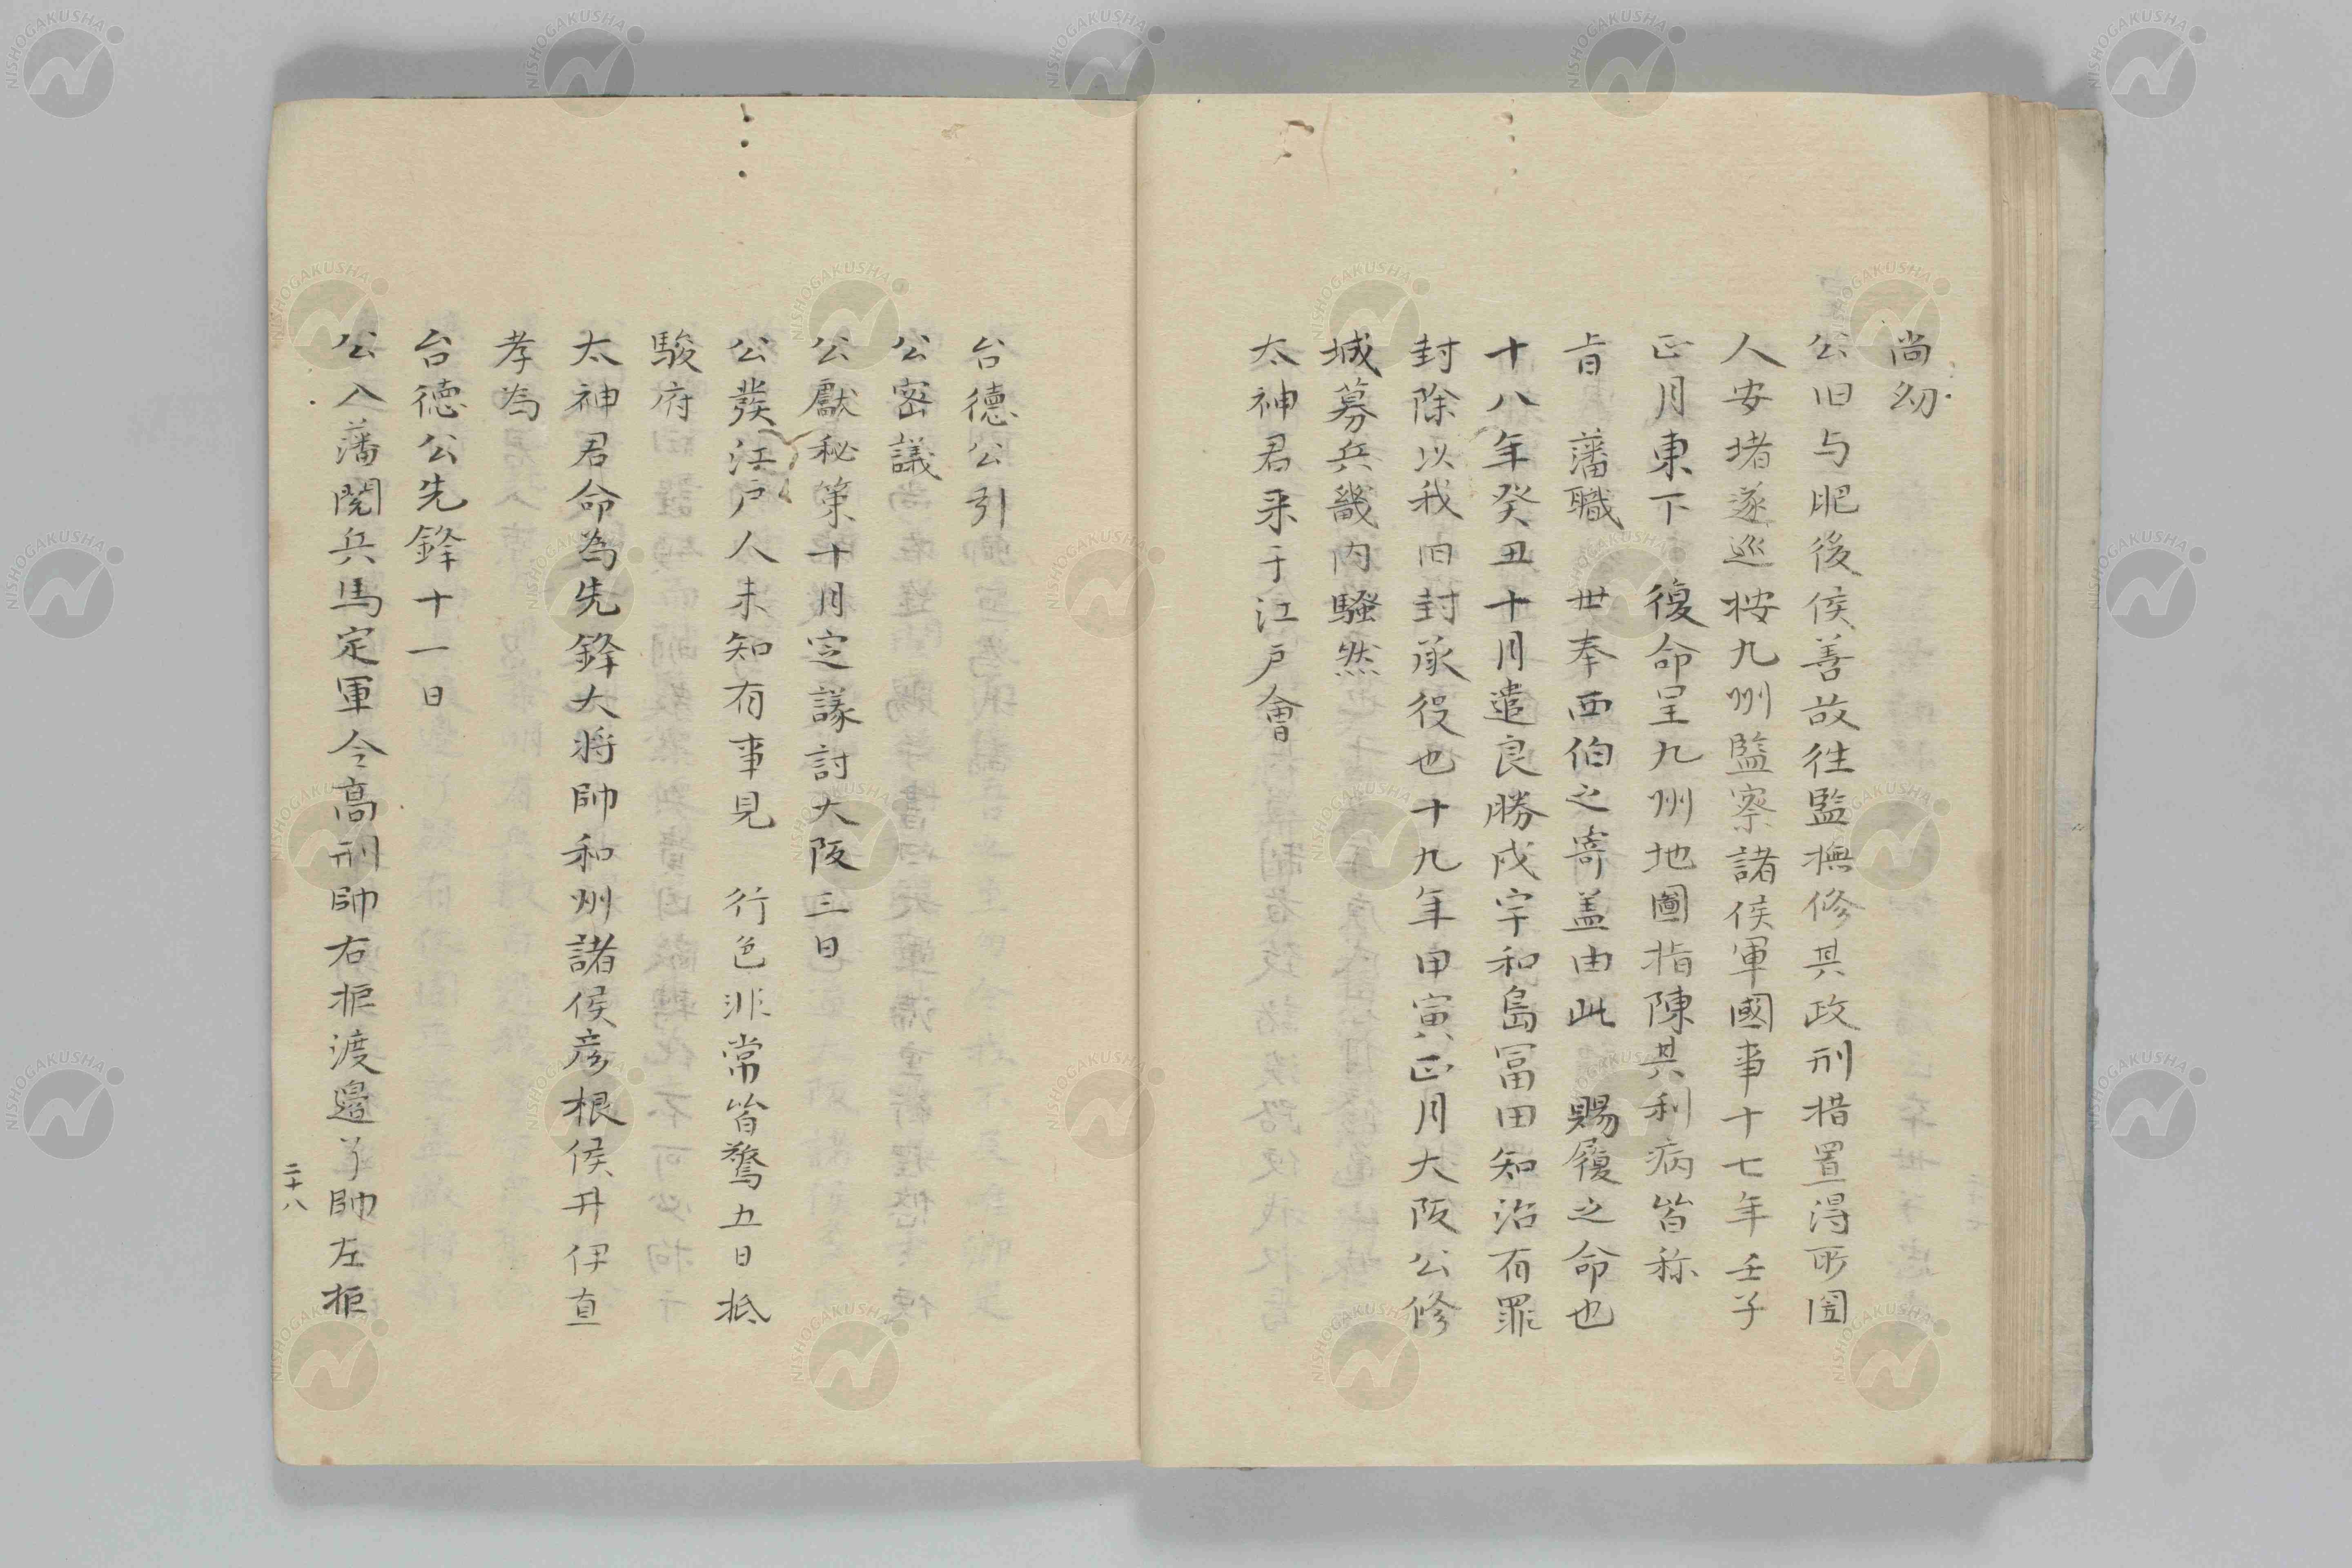 尚幼
公旧与肥後侯善故往監撫修其政刑措置得所圀
人安堵遂巡按九州監察諸侯軍國事十七年壬子
正月東下　復命呈九州地圖指陳其利病皆称
旨　藩職　世奉西伯之寄盖由此　賜履之命也
十八年癸丑十月遣良勝戍宇和島冨田知治有罪
封除以我旧封承役也十九年甲寅正月大阪公修
城募兵畿内騒然
太神君来于江戸會
台徳公引
公密議
公獻秘策十月定議討大阪三日
公發江戸人未知有事見　行色非常皆驚五日抵
駿府
太神君命為先鋒大将帥和州諸侯彦根侯井伊直
孝為
台徳公先鋒十一日
公入藩閲兵馬定軍令高刑帥右拒渡邉了帥左拒
二十八
NISHOGAKUSHA